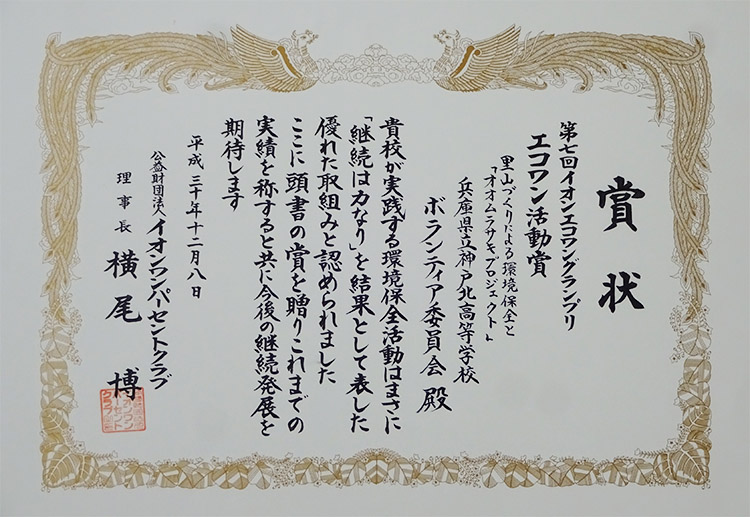 賞状
第七回イオンエコワングランプリ
エコワン活動賞
里山づくりによる環境保全と
「オオムラサキプロジェクト」
兵庫県立神戸北高等学校
ボランティア委員会 殿
貴校が実践する環境保全活動はまさに
「継続は力なり」を結果として表した
優れた取組みと認められました
ここに頭書の賞を贈りこれまでの
実績を称すると共に今後の継続発展を
期待します
平成三十年十二月八日
公益財団法人イオンワンパーセントクラブ
理事長 横尾 博